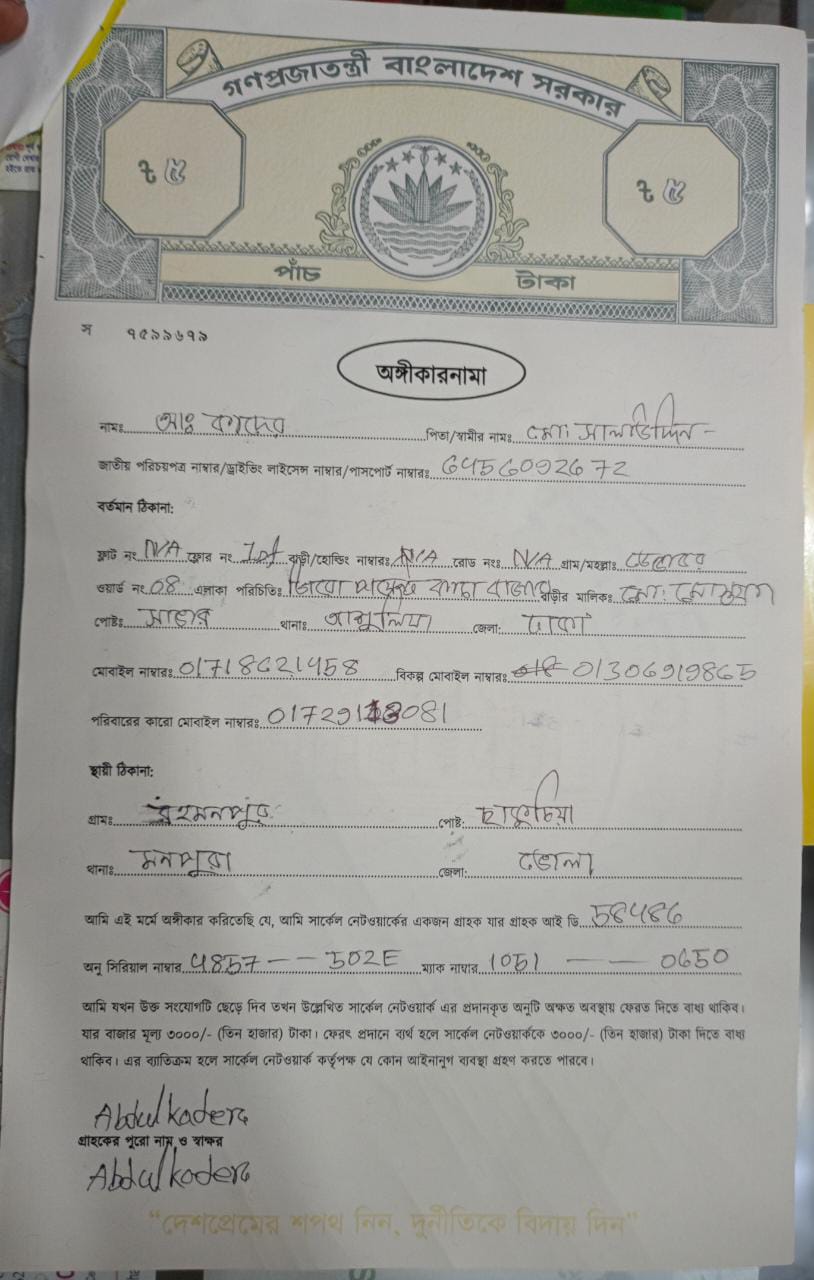 গণপ্রজাতন্ত্রী বাংলাদেশ সরকার
৳ ৫ ৳ ৫
পাঁচ টাকা
স ৭৫৯৯৬৭৯
অঙ্গীকারনামা
নামঃ আঃ কাদের পিতা/স্বামীর নামঃ মোঃ
জাতীয় পরিচয়পত্র নাম্বার/ড্রাইভিং লাইসেন্স নাম্বার/পাসপোর্ট নাম্বারঃ 6456092672
বর্তমান ঠিকানা:
ফ্লাট নং N/A ফ্লোর নং 1st বাড়ী/হোল্ডিং নাম্বারঃ N/A রোড নংঃ N/A গ্রাম/মহল্লাঃ
ওয়ার্ড নং 08 এলাকা পরিচিতিঃ জিরো পয়েন্ট কাচা বাজার বাড়ীর মালিকঃ মোঃ
পোষ্টঃ সাভার থানাঃ আশুলিয়া জেলা: ঢাকা
মোবাইল নাম্বারঃ 01718621458 বিকল্প মোবাইল নাম্বারঃ 01306919865
পরিবারের কারো মোবাইল নাম্বারঃ
স্থায়ী ঠিকানা:
গ্রামঃ রহমনপুর পোষ্ট:
থানাঃ মনপুরা জেলা: ভোলা
আমি এই মর্মে অঙ্গীকার করিতেছি যে, আমি সার্কেল নেটওয়ার্কের একজন গ্রাহক যার গ্রাহক আই ডি 58486
অনু সিরিয়াল নাম্বার 4857 -- 502E ম্যাক নাম্বার 1051 -- 0650
আমি যখন উক্ত সংযোগটি ছেড়ে দিব তখন উল্লেখিত সার্কেল নেটওয়ার্ক এর প্রদানকৃত অনুটি অক্ষত অবস্থায় ফেরত দিতে বাধ্য থাকিব।
যার বাজার মূল্য ৩০০০/- (তিন হাজার) টাকা। ফেরৎ প্রদানে ব্যর্থ হলে সার্কেল নেটওয়ার্ককে ৩০০০/- (তিন হাজার) টাকা দিতে বাধ্য
থাকিব। এর ব্যতিক্রম হলে সার্কেল নেটওয়ার্ক কর্তৃপক্ষ যে কোন আইনানুগ ব্যবস্থা গ্রহণ করতে পারবে।
Abdul kader
গ্রাহকের পুরো নাম ও স্বাক্ষর
Abdul kader
“দেশপ্রেমের শপথ নিন, দুর্নীতিকে বিদায় দিন”